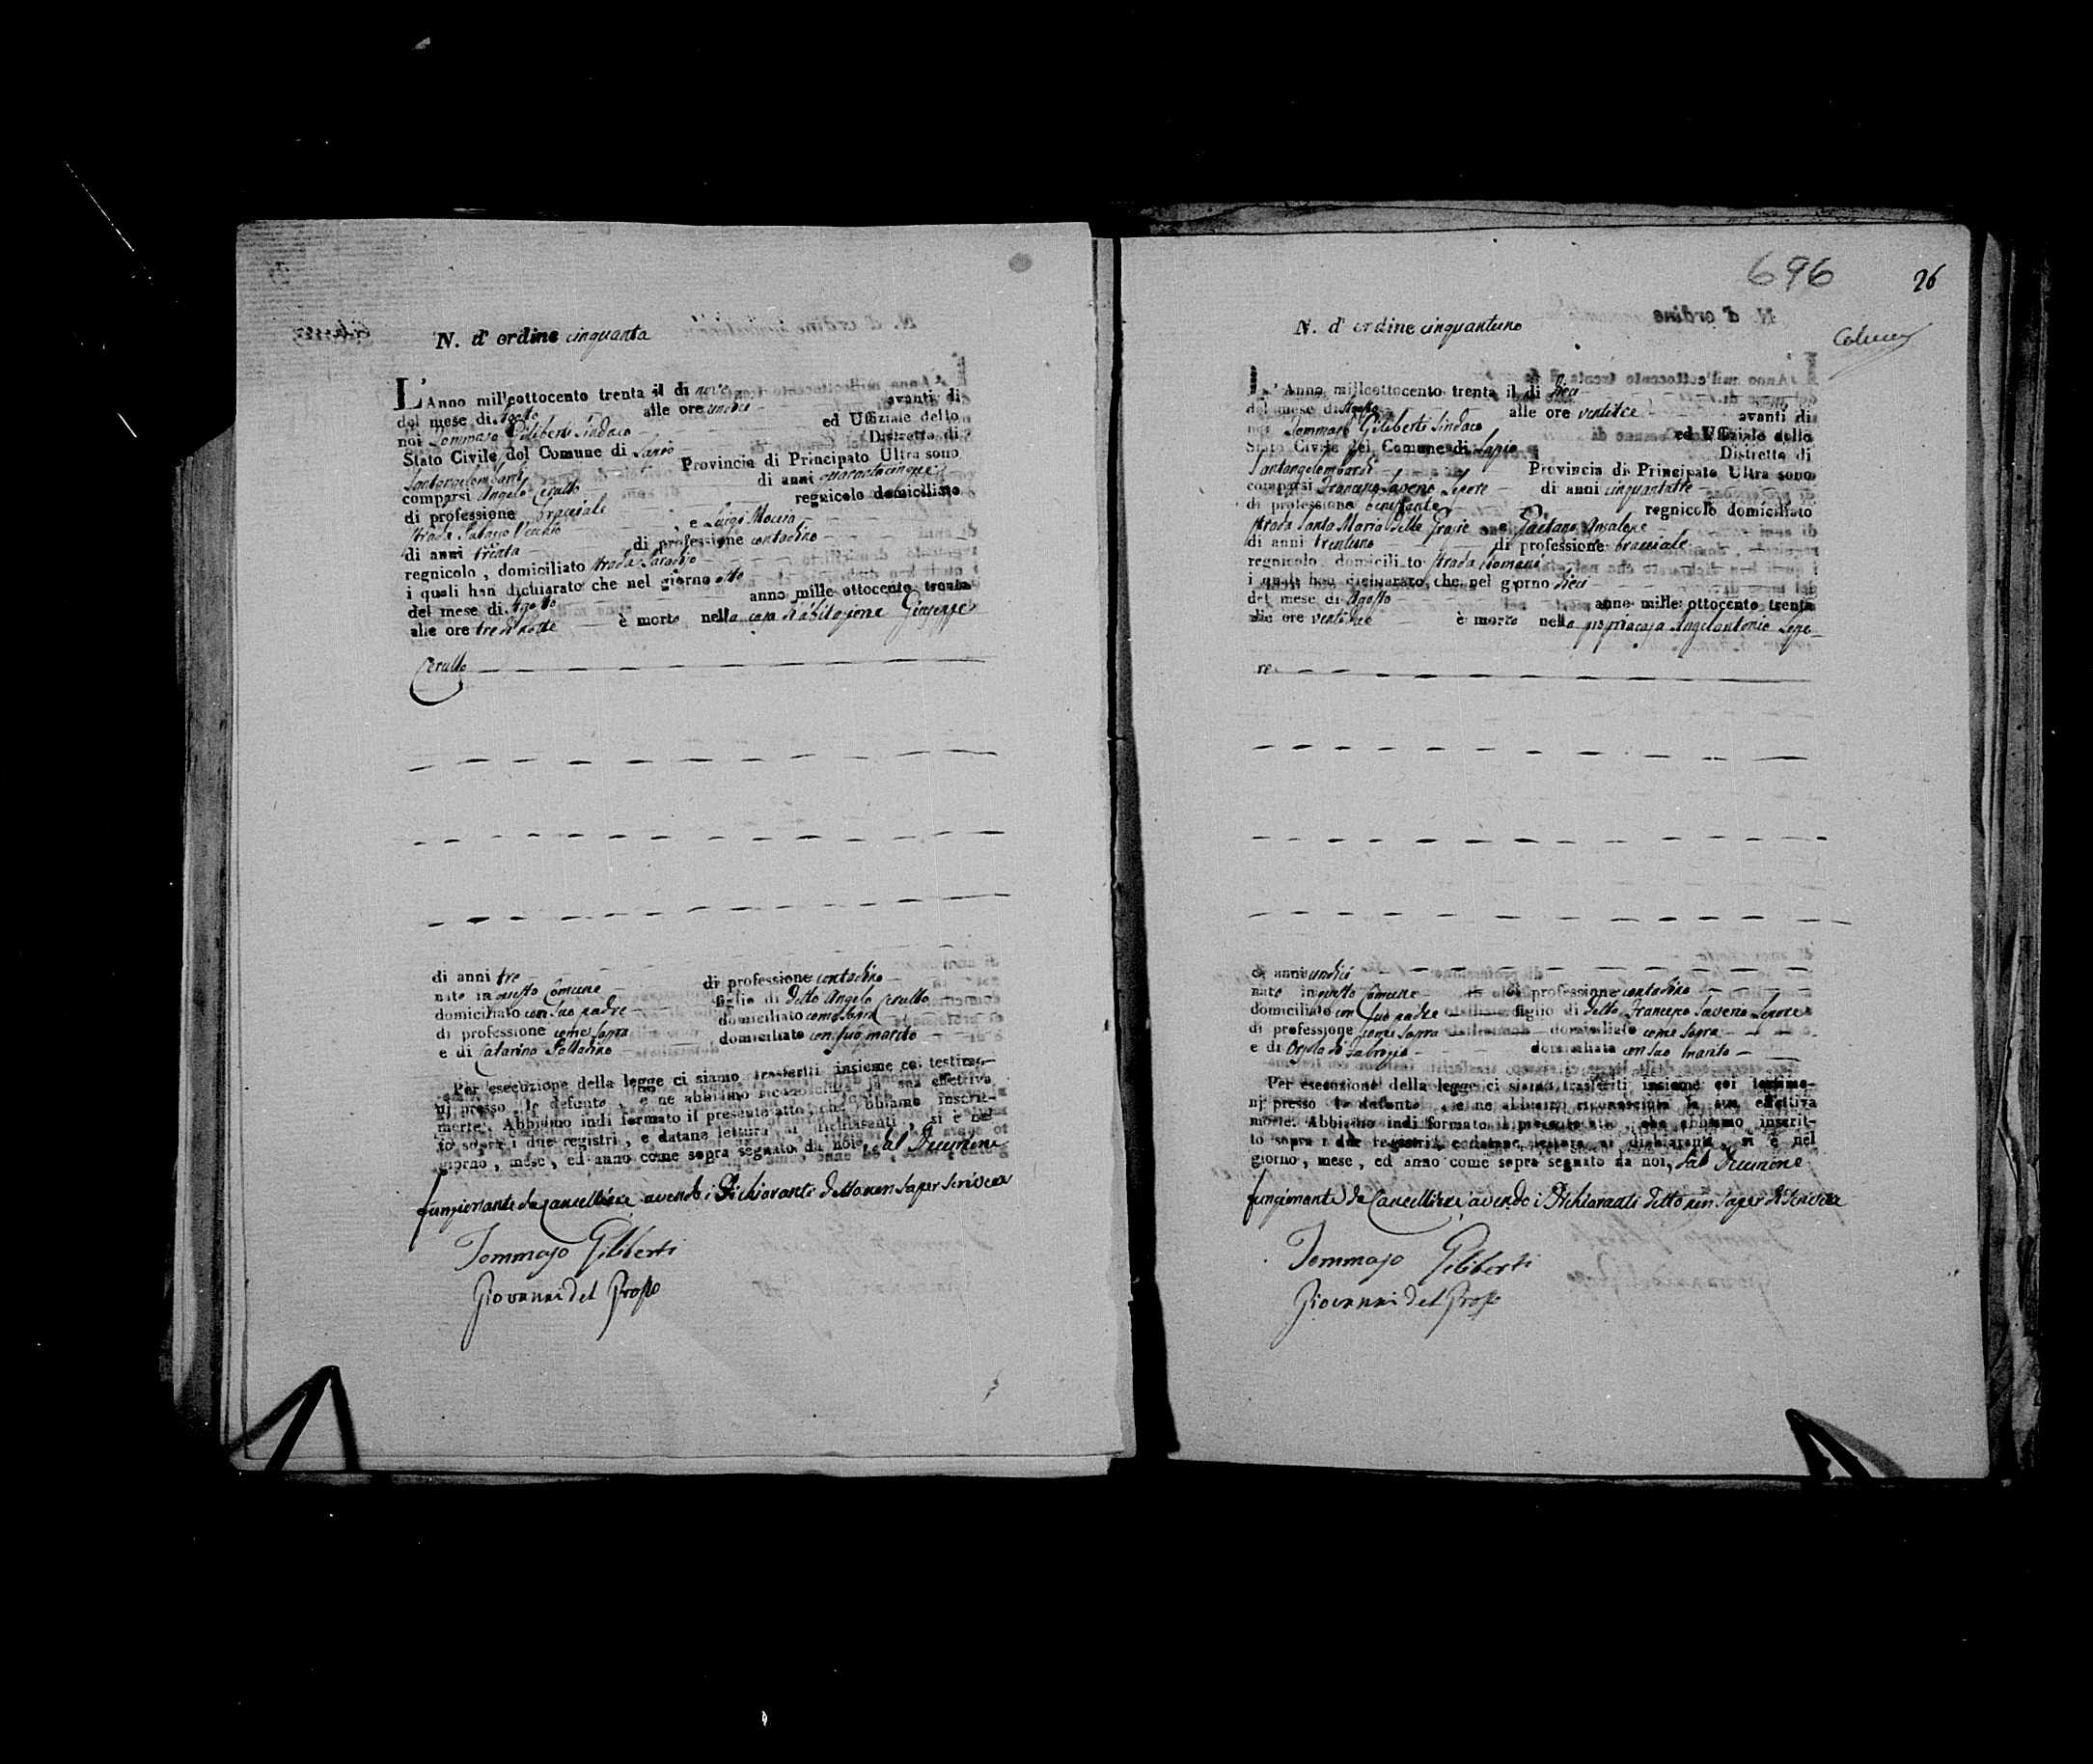 N. d' ordine cinquanta
L'Anno mill'eottocento trenta il dì nove
del mese di Agosto alle ore undici avanti di
noi Tommaso Giliberti Sindaco ed Uffiziale dello
Stato Civile del Comune di Lapio Distretto di
Santangelombardi Provincia di Principato Ultra sono
comparsi Angelo Cerullo di anni quarantacinque
di professione bracciale regnicolo domiciliato
strada Palazzo Vecchio , e Luigi Moccia
di anni trenta di professione contadino
regnicolo , domiciliato strada
i quali han dichiarato che nel giorno otto
del mese di Agosto anno mille ottocento trenta
alle ore tre di notte è morto nella casa d'abitazione Giuseppe
Cerullo
di anni tre di professione contadino
nato in questo Comune figlio di detto Angelo Cerullo
domiciliato con suo padre domiciliato come sopra
di professione come sopra
e di Catarina domiciliato con suo marito
Per esecuzione della legge ci siamo trasferiti insieme coi testimo-
nj presso lo defunto , e ne abbiamo riconosciuta la sua effettiva
morte. Abbiamo indi formato il presente atto, che abbiamo inscrit-
to sopra i due registri, e datane lettura ai dichiaranti, si è nel
giorno , mese , ed anno come sopra segnato da noi, dal Decurione
funzionante da Cancelliere avendo i Dichiaranti detto non saper scrivere
Tommaso Giliberti
Giovanni del Grosso
696
26
N. d' ordine cinquantuno
L'Anno mill'eottocento trenta il dì dieci
del mese di Agosto alle ore ventitre avanti di
noi Tommaso Giliberti Sindaco ed Uffiziale dello
Stato Civile del Comune di Lapio Distretto di
Santangelombardi Provincia di Principato Ultra sono
comparsi Francesco Saverio Lepore di anni cinquantatre
di professione benestante regnicolo domiciliato
strada Santa Maria delle Grazie e Gaetano Ansalone
di anni trentuno di professione bracciale
regnicolo domiciliato strada
i quali han dichiarato che nel giorno dieci
del mese di Agosto anno mille ottocento trenta
alle ore ventidue è morto nella propria casa Angelantonio Lepo-
re
di anni undici
nato in questo Comune di professione contadino
domiciliato con suo padre figlio di detto Francesco Saverio Lepore
di professione come sopra domiciliato come sopra
e di Orsola di Fabrizio domiciliata con suo marito
Per esecuzione della legge ci siamo trasferiti insieme coi testimo-
nj presso lo defunto , e ne abbiamo riconosciuta la sua effettiva
morte. Abbiamo indi formato il presente atto , che abbiamo inscrit-
to sopra i due registri, e datane lettura ai dichiaranti, si è nel
giorno , mese , ed anno come sopra segnato da noi, dal Decurione
funzionante da Cancelliere avendo i Dichiaranti detto non saper di scrivere
Tommaso Giliberti
Giovanni del Grosso